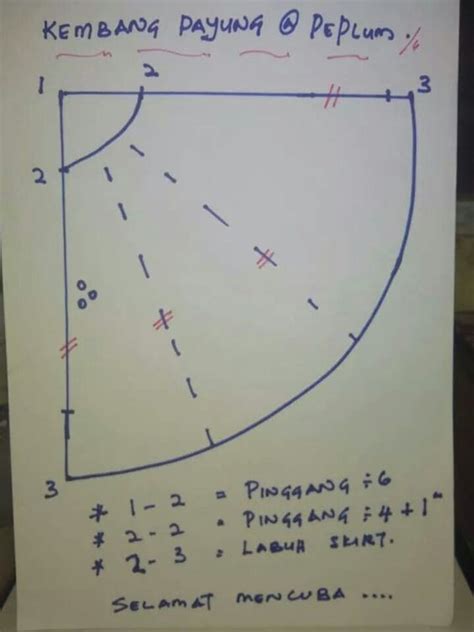 KEMBANG PAYUNG @ PEPLUM.
1 2 3
2
3
* 1 - 2 = PINGGANG ÷ 6
* 2 - 2 = PINGGANG ÷ 4 + 1"
* 2 - 3 = LABUH SKIRT.
SELAMAT MENCUBA ....